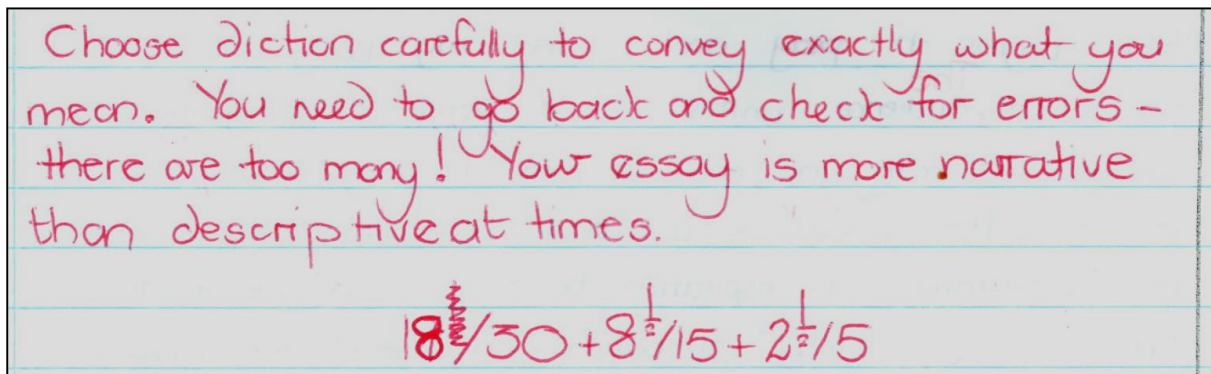 Choose diction carefully to convey exactly what you
mean. You need to go back and check for errors -
there are too many! Your essay is more narrative
than descriptive at times.
18/30 + 8½/15 + 2½/5